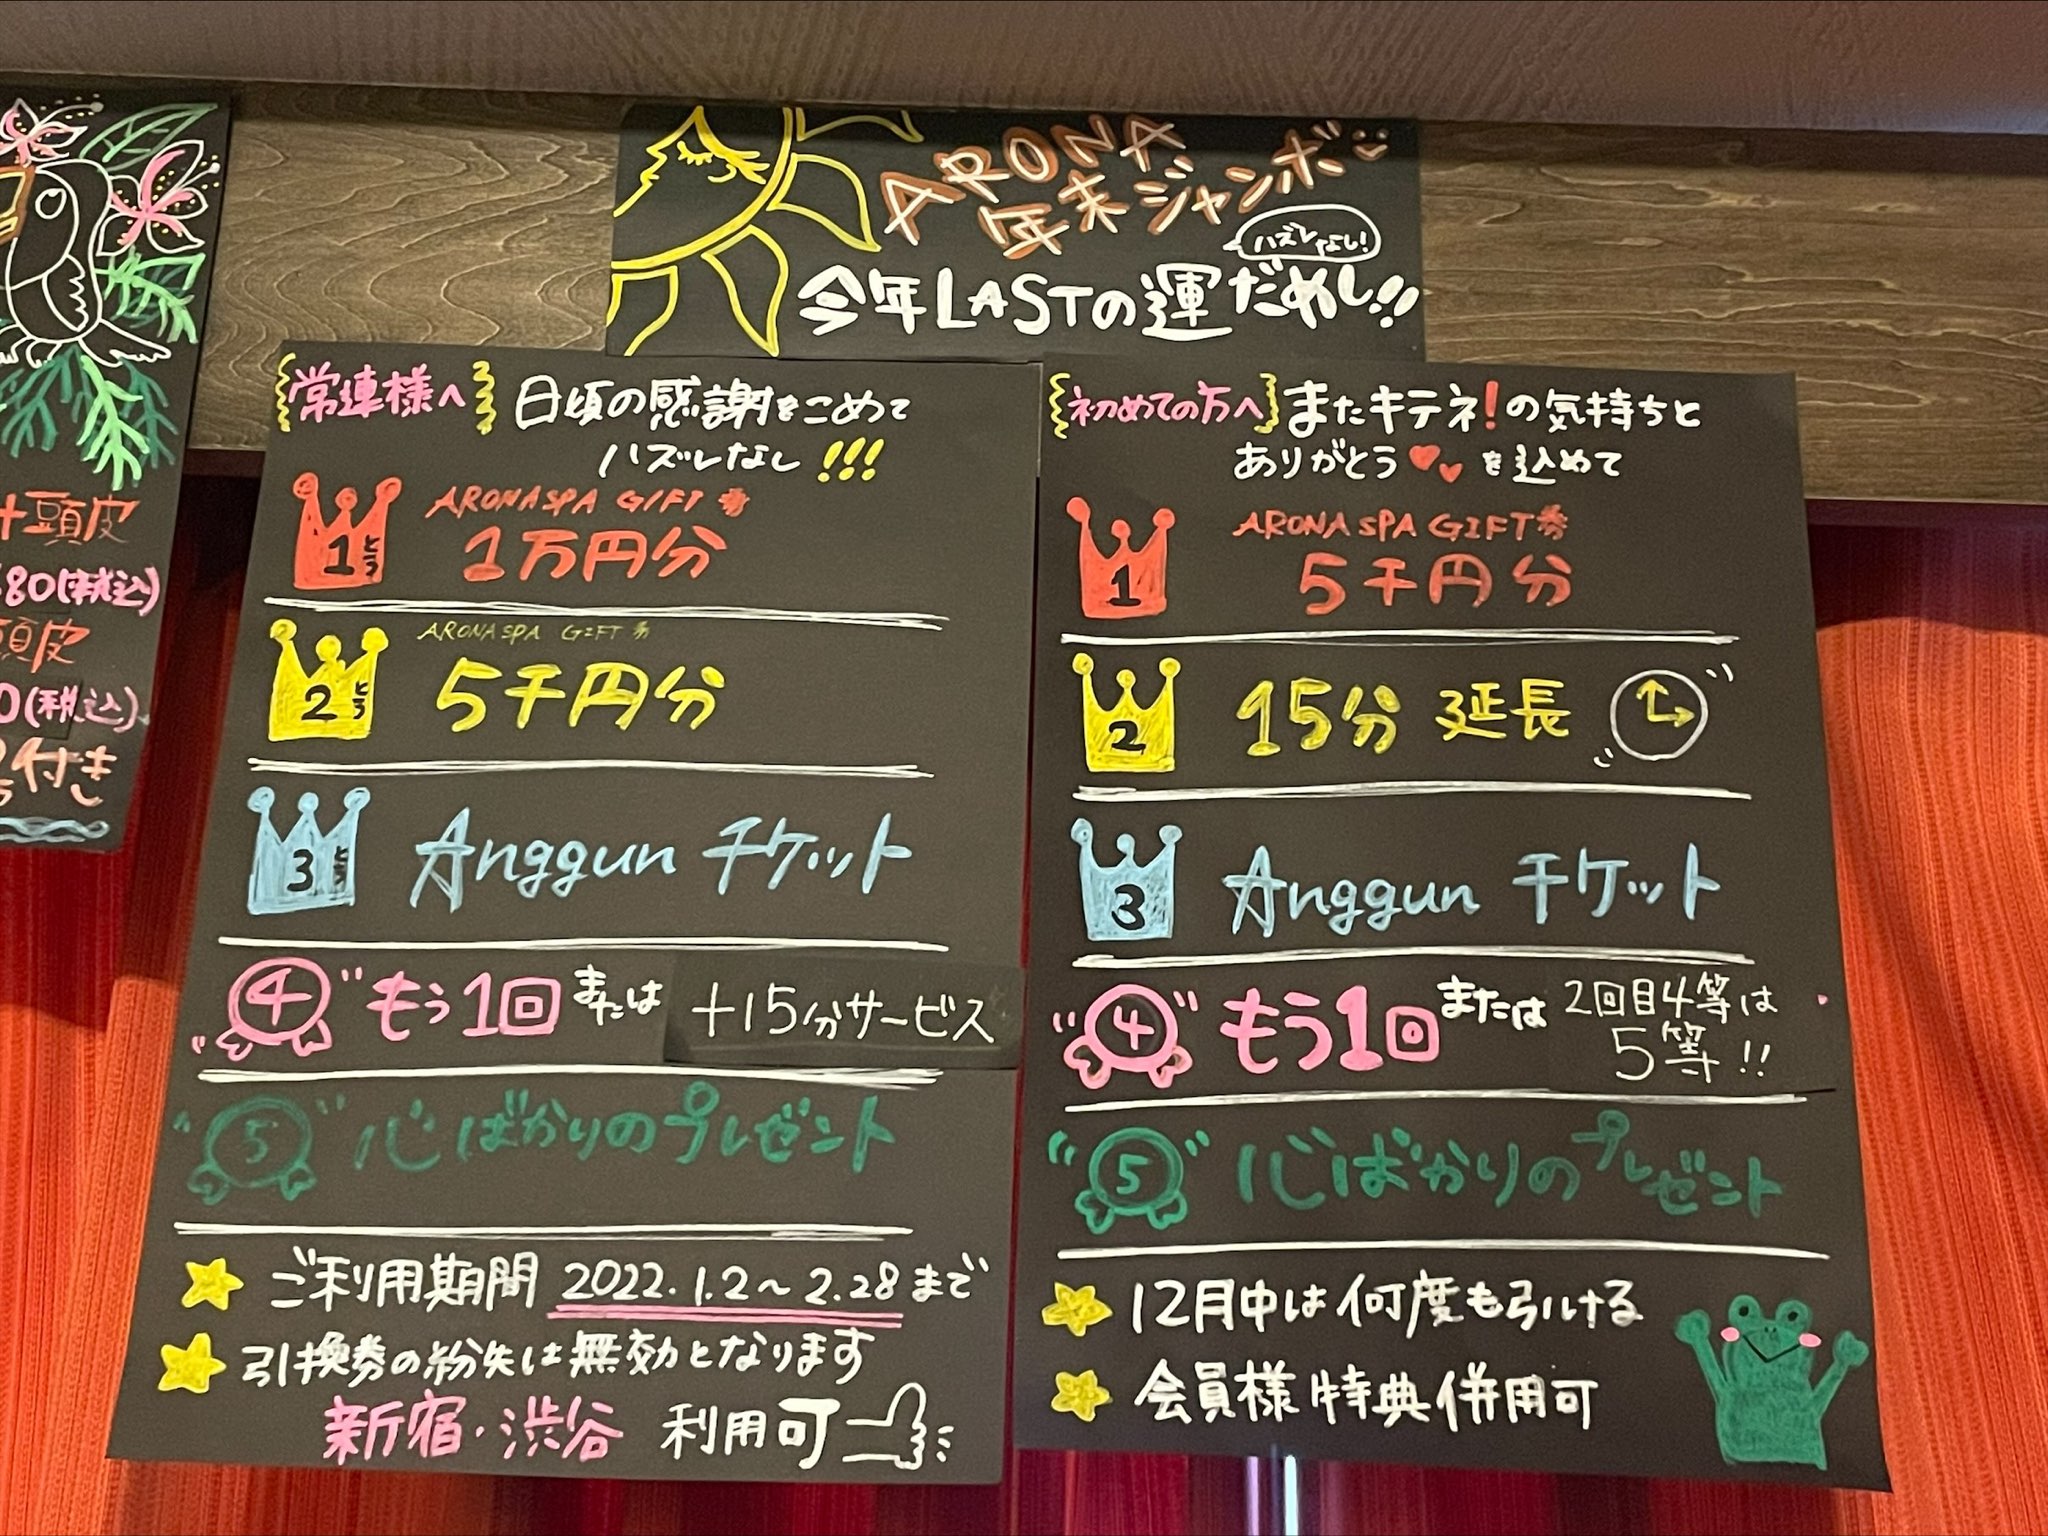 ARONA
年末ジャンボ
ハズレなし!
今年LASTの運だめし!!
常連様へ 日頃の感謝をこめて
ハズレなし!!!
ARONA SPA GIFT券
1等 1万円分
ARONA SPA GIFT券
2等 5千円分
3等 Anggun チケット
4 もう1回 または +15分サービス
5 心ばかりのプレゼント
ご利用期間 2022.1.2~2.28まで
引換券の紛失は無効となります
新宿・渋谷 利用可
初めての方へ またキテネ!の気持ちと
ありがとうを込めて
ARONA SPA GIFT券
1 5千円分
2 15分 延長
3 Anggun チケット
4 もう1回 または 2回目4等は
5等!!
5 心ばかりのプレゼント
12月中は何度も引ける
会員様特典併用可
+頭皮
80(税込)
頭皮
0(税込)
付き